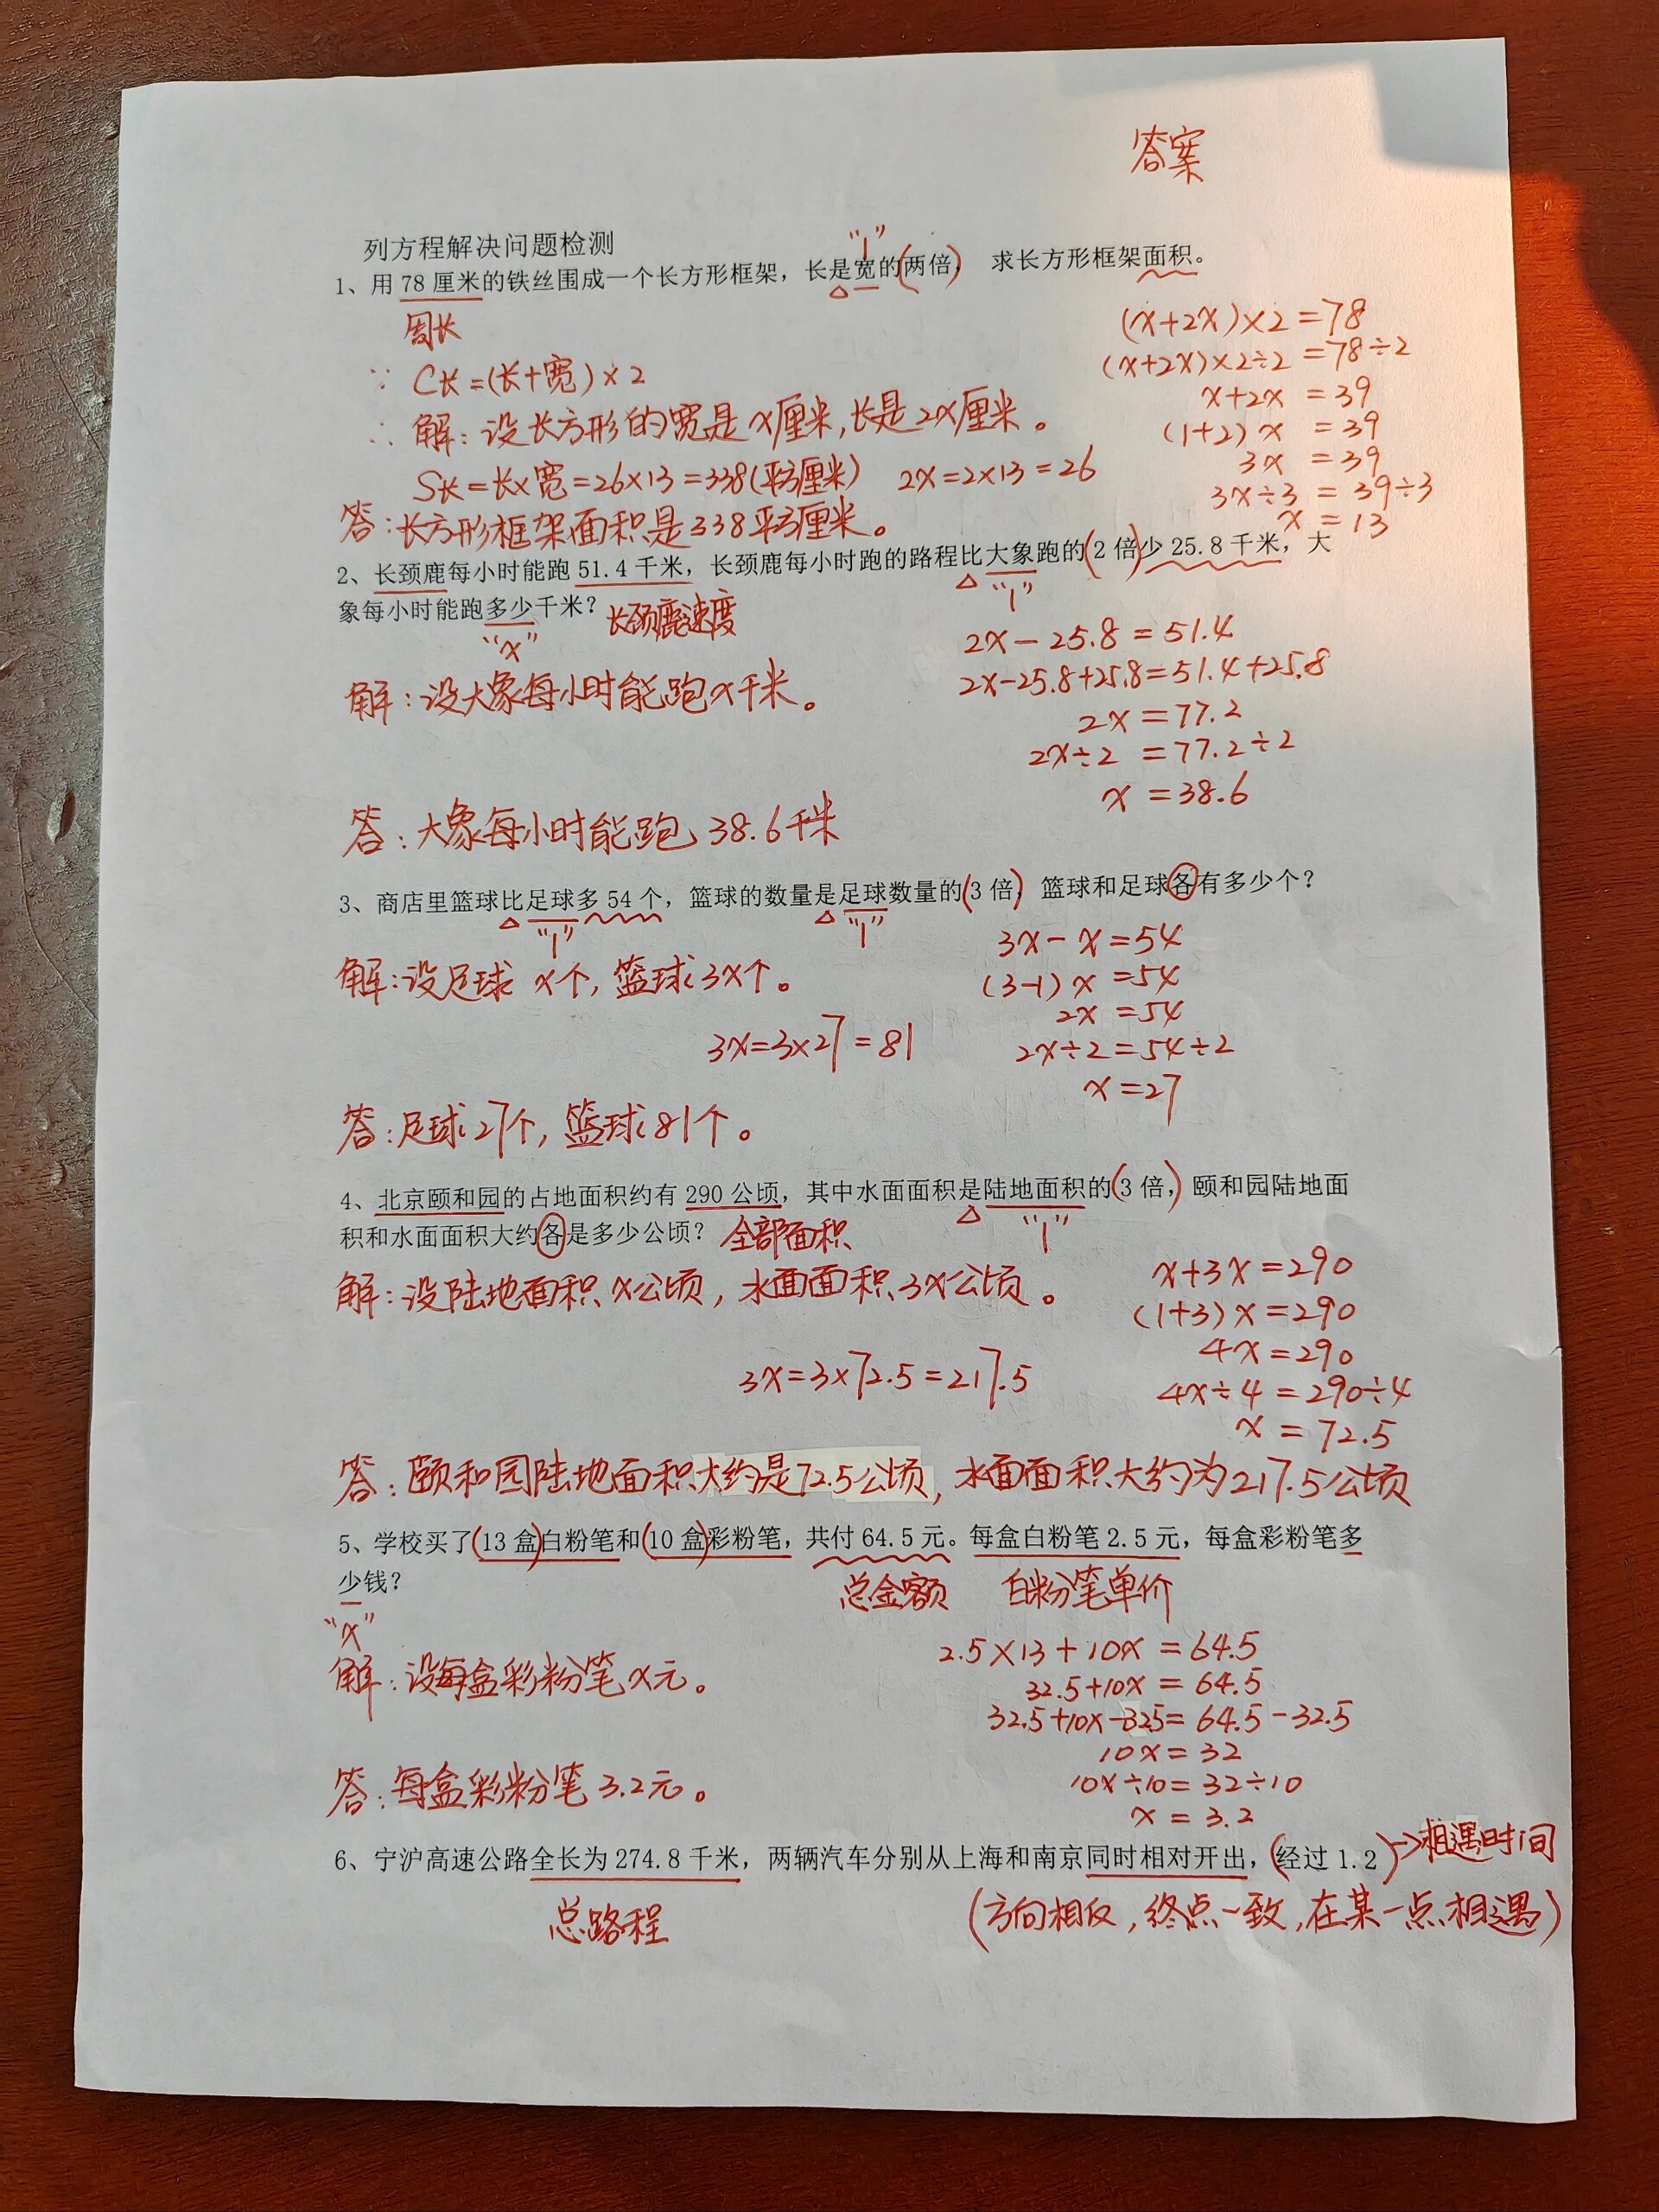 答案
列方程解决问题检测
"1"
1、用78厘米的铁丝围成一个长方形框架，长是宽的(两倍)， 求长方形框架面积。
周长
(x+2x)×2=78
∵ C长=(长+宽)×2
(x+2x)×2÷2=78÷2
x+2x=39
∴ 解：设长方形的宽是x厘米,长是2x厘米。
(1+2)x=39
3x=39
S长=长×宽=26×13=338(平方厘米) 2x=2×13=26
3x÷3=39÷3
x=13
答：长方形框架面积是338平方厘米。
2、长颈鹿每小时能跑51.4千米，长颈鹿每小时跑的路程比大象跑的(2倍)少25.8千米，大
"1"
象每小时能跑多少千米？ 长颈鹿速度
"x"
2x-25.8=51.4
2x-25.8+25.8=51.4+25.8
解：设大象每小时能跑x千米。
2x=77.2
2x÷2=77.2÷2
x=38.6
答：大象每小时能跑38.6千米
3、商店里篮球比足球多54个，篮球的数量是足球数量的(3倍)，篮球和足球各有多少个？
"1" "1"
3x-x=54
解：设足球x个，篮球3x个。
(3-1)x=54
2x=54
3x=3×27=81
2x÷2=54÷2
x=27
答：足球27个，篮球81个。
4、北京颐和园的占地面积约有290公顷，其中水面面积是陆地面积的(3倍，)颐和园陆地面
"1"
积和水面面积大约各是多少公顷？ 全部面积
x+3x=290
解：设陆地面积x公顷，水面面积3x公顷。
(1+3)x=290
4x=290
3x=3×72.5=217.5
4x÷4=290÷4
x=72.5
答：颐和园陆地面积大约是72.5公顷，水面面积大约为217.5公顷
5、学校买了(13盒)白粉笔和(10盒)彩粉笔，共付64.5元。每盒白粉笔2.5元，每盒彩粉笔多
少钱？
总金额 白粉笔单价
"x"
2.5×13+10x=64.5
解：设每盒彩粉笔x元。
32.5+10x=64.5
32.5+10x-32.5=64.5-32.5
10x=32
答：每盒彩粉笔3.2元。
10x÷10=32÷10
x=3.2
6、宁沪高速公路全长为274.8千米，两辆汽车分别从上海和南京同时相对开出，(经过1.2)→相遇时间
总路程
(方向相反，终点一致，在某一点相遇)